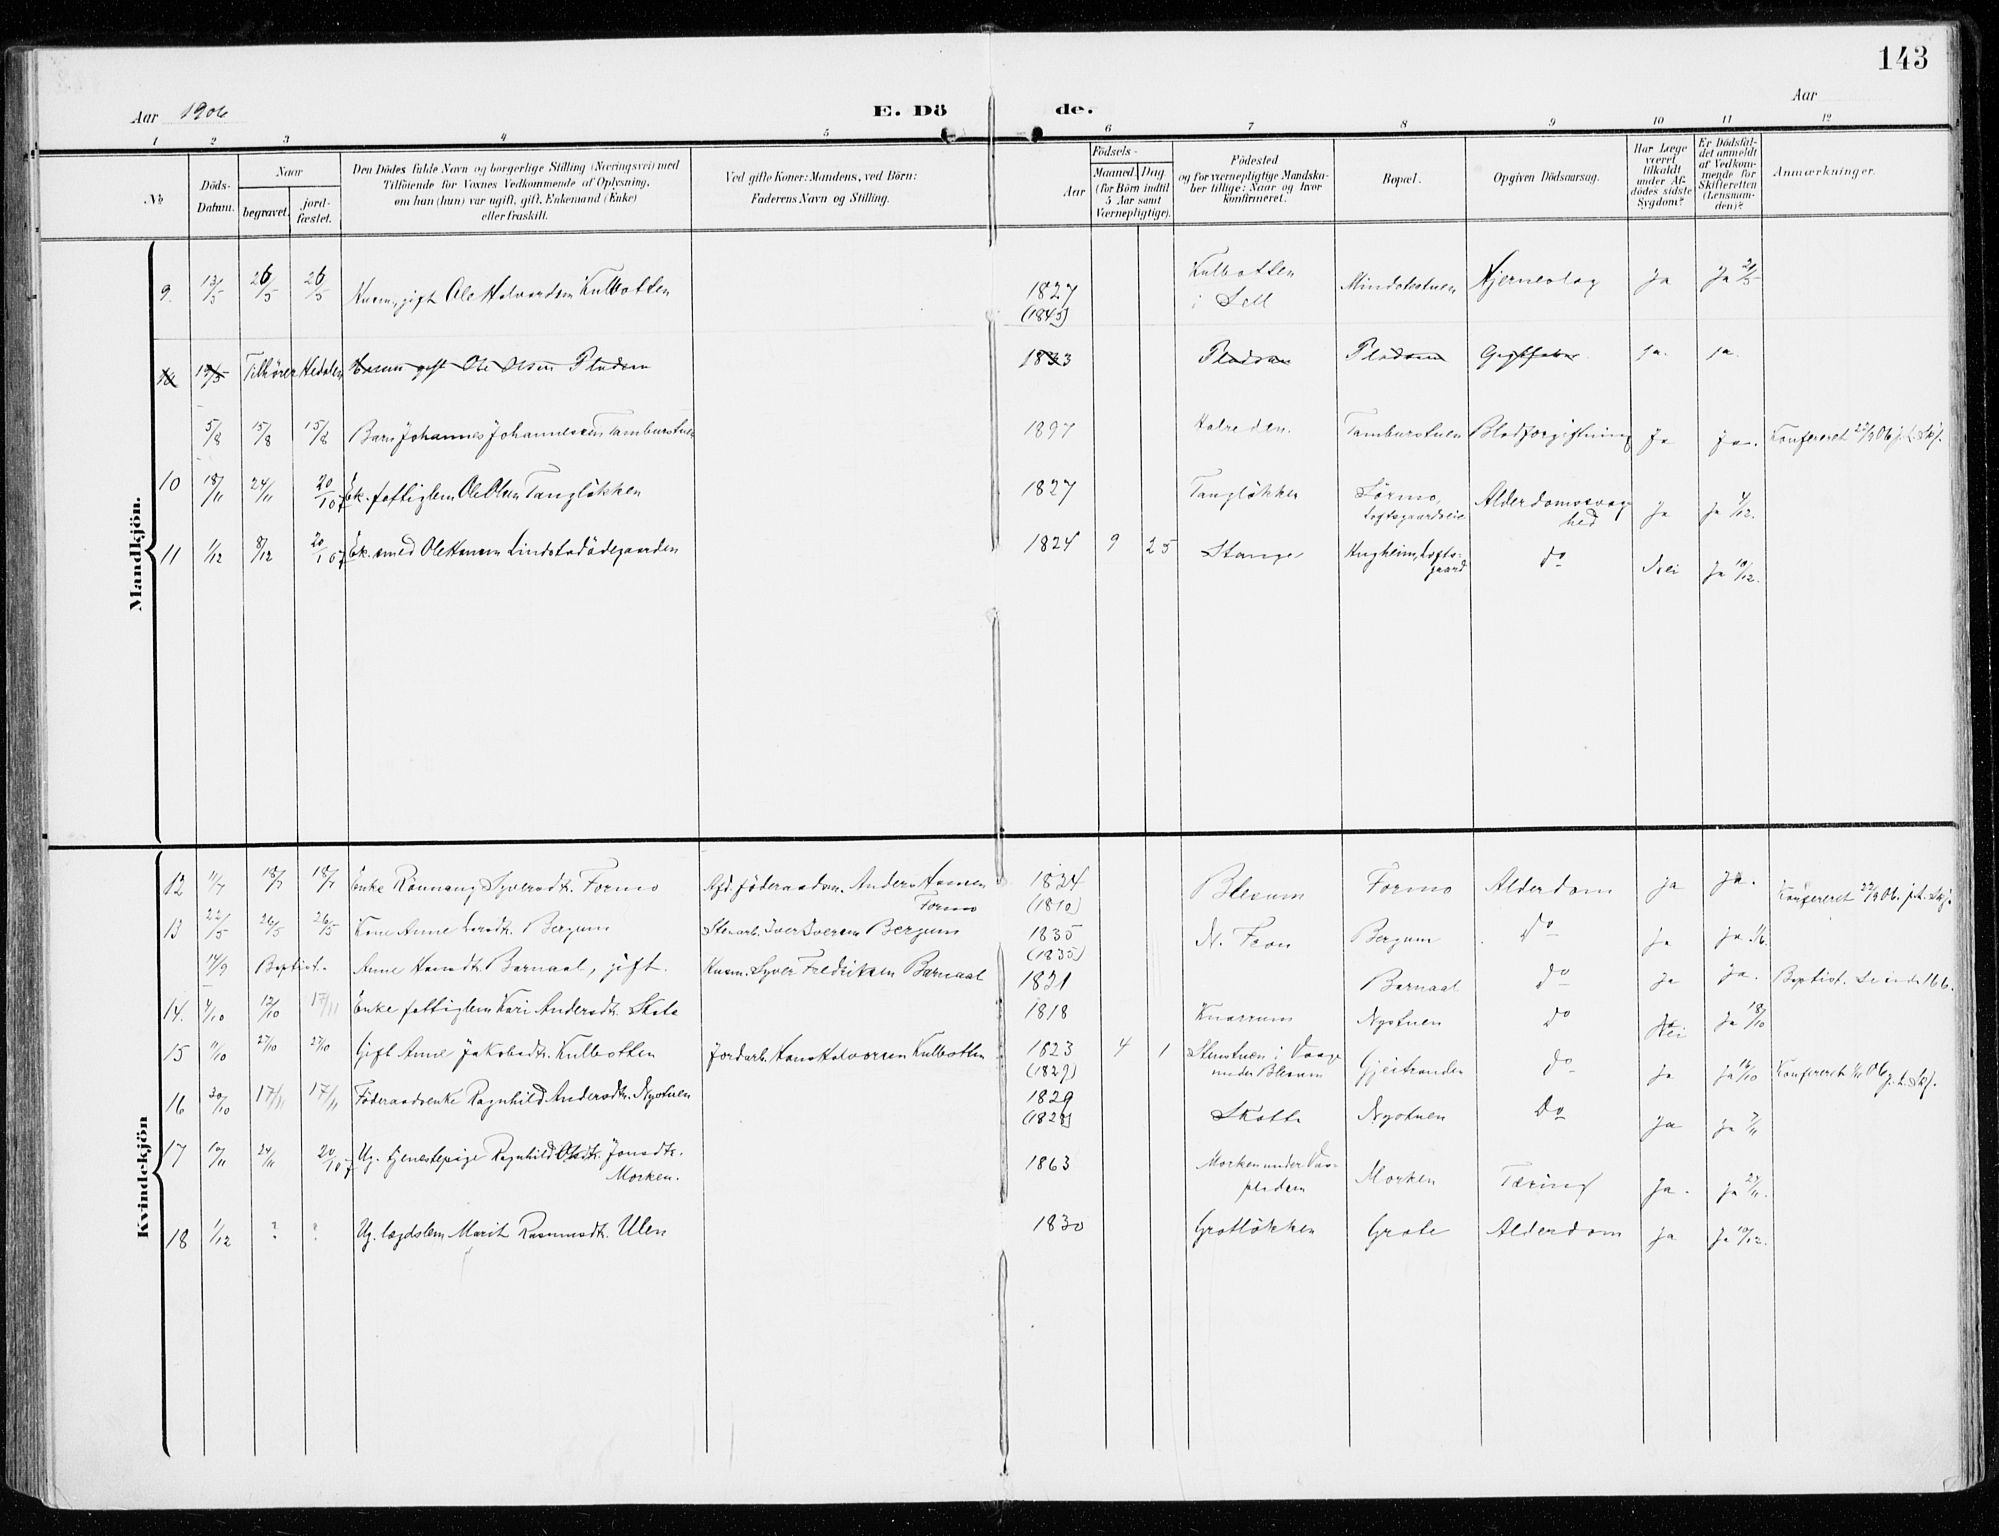 143
Aar 1906 E. Dö de. Aar
1 2 3 4 5 6 7 8 9 10 11 12
№ Döds-Datum. Naar begravet. jord-fæstet. Den Dödes fulde Navn og borgerlige Stilling (Næringsvei) med Tilföiende for Voxnes Vedkommende af Oplysning, om han (hun) var ugift, gift, Enkemand (Enke) eller fraskilt. Ved gifte Koner: Mandens, ved Börn: Faderens Navn og Stilling. Födsels- Aar Maaned Dag (for Börn indtil 5 Aar samt Værnepligtige). Födested og for værnepligtige Mandskaber tillige: Naar og hvor konfirmeret. Bopæl. Opgiven Dödsaarsag. Har Læge været tilkaldt under Afdödes sidste Sygdom? Er Dödsfaldet anmeldt af Vedkommende for Skifteretten (Lensmanden)? Anmærkninger.
Mandkjön.
9. 13/5 26/5 26/5 Husm., gift Ole Halvordsen Kulbotten 1827 (1845) Kulbotten i Sell Mindestuen Hjerneslag Ja Ja 21/5
10 Tilhører Hedalen Husm. gift Ole Olsen Pladsen 1833 Pladsen Pladsen Gigtfeber ja. ja.
5/8 15/8 15/8 Barn Johannes Johannessen Tamburstuen 1897 Tamburstuen Blodforgiftning Ja Ja. Konfereret 22/9 06 j. L. Skj.
10 18/11 24/11 20/1 07 Ek. fattiglem Ole Olsen Tangløkken 1827 Tangløkken Sørmo, Alderdomssvaghed Ja Ja 4/12.
11 1/12 8/12 20/1 07 Ek. smed Ole Hansen Lindstadødegaarden 1824 9 25 Stange Do Nei Ja 10/12.
Kvindekjön
12 11/7 18/7 18/7 Enke Rønnaug Syversdt. Formo Afd. føderaadsm. Anders Hansen Formo 1824 (1810) Blesum Formo Alderdom Ja Ja. Konfereret 22/9 06. j. L. Skj.
13 22/5 26/5 26/5 Kone Anne Bergum Stenarb. Iver Iversen Bergum 1835 (1835) N. Fron Bergum Do Ja Ja 1/6.
14/9 Baptist. Anne Hansdt. Barnaal, gift. Husm. Syver Fredriksen Barnaal 1821 Barnaal Do Ja Ja. Baptist. Se side 166.
14. 4/10 12/10 17/11 Enke fattiglem Kari Andersdt. Skote 1818 Knarrum Nystuen Do Nei Ja 18/10
15 11/10 27/10 27/10 Gift Anne Jakobsdt. Kulbotten Jordarb. Hans Halvorsen Kulbotten 1823 (1829) 4 1 Stenstuen i Vaage under Blesum Gjeitranden Do Ja Ja 16/10 Konfereret 06 j. L. Skj.
16 30/10 17/11 17/11 Føderaadsenke Ragnhild Andersdt. Nystuen 1829 (1828) Skotte Nystuen Do Ja Ja 7/11
17 24/11 20/1 07 Ug. tjenestepige Ragnhild Olsdt. Jonsdt. Morken. 1863 Morken under pladsen Morken Tæring Ja. Ja 27/11.
18 1/12 ? ? Ug. lægdslem Marit Rasmusdt. Ulen 1830 Grotløkken Grote Alderdom Ja Ja 10/12.